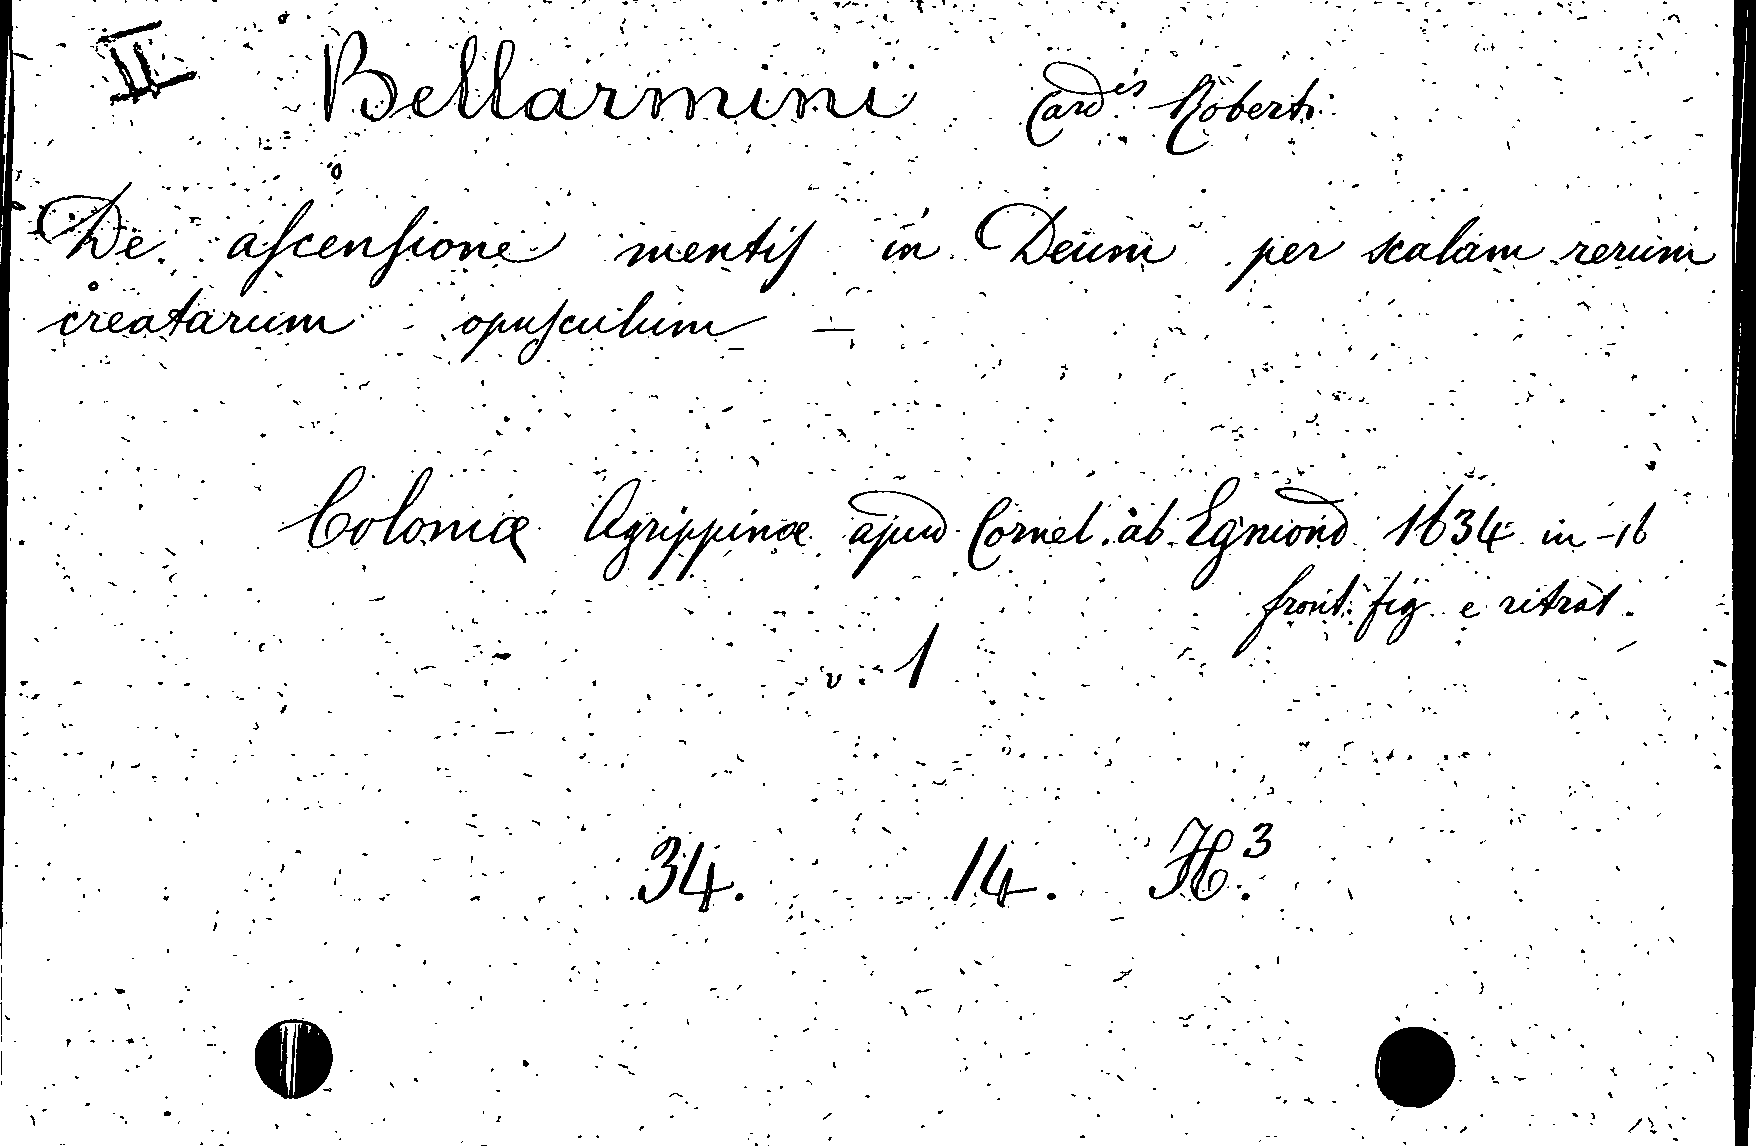 II Bellarmini Card.is Roberti
De ascensione mentis in Deum per scalam rerum
creatarum opusculum —
Coloniæ Agrippinæ apud Cornel. ab Egmond 1634 in-16
front. fig. e ritrat.
v. 1
34. 14. H.3